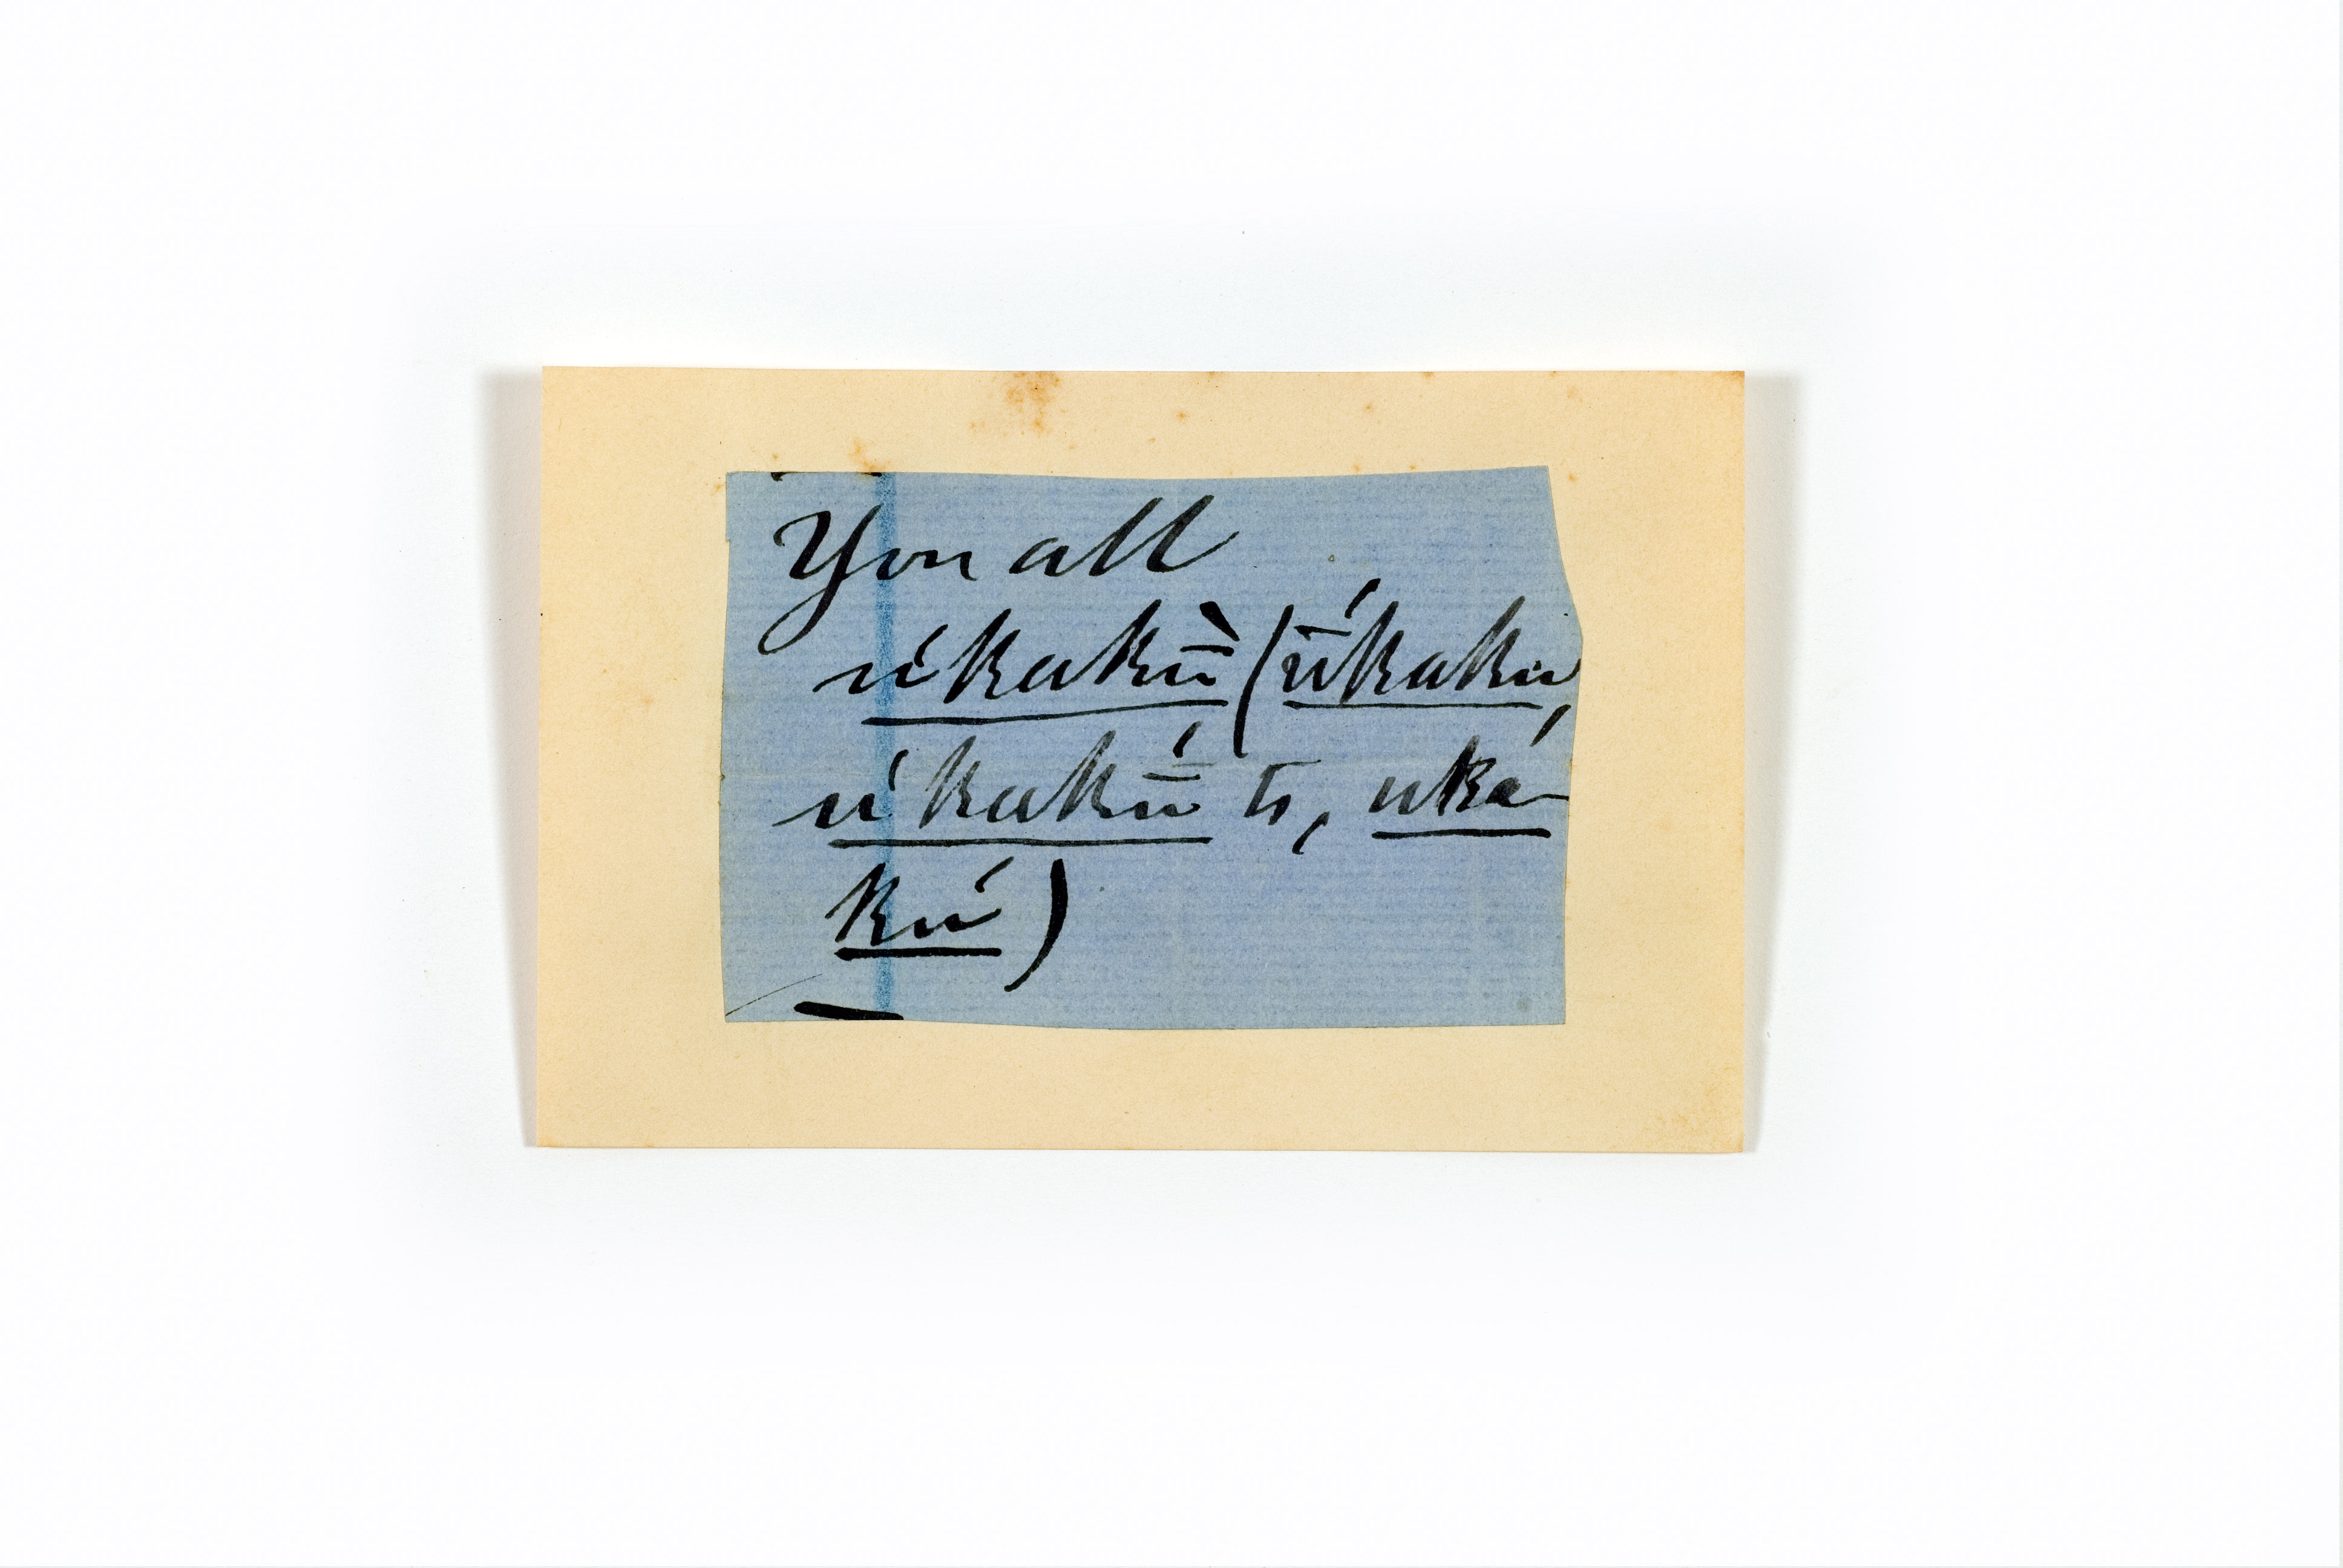 You all
úkakū̀ (ū́kaku,
úkakū́ to, uká-
kú)